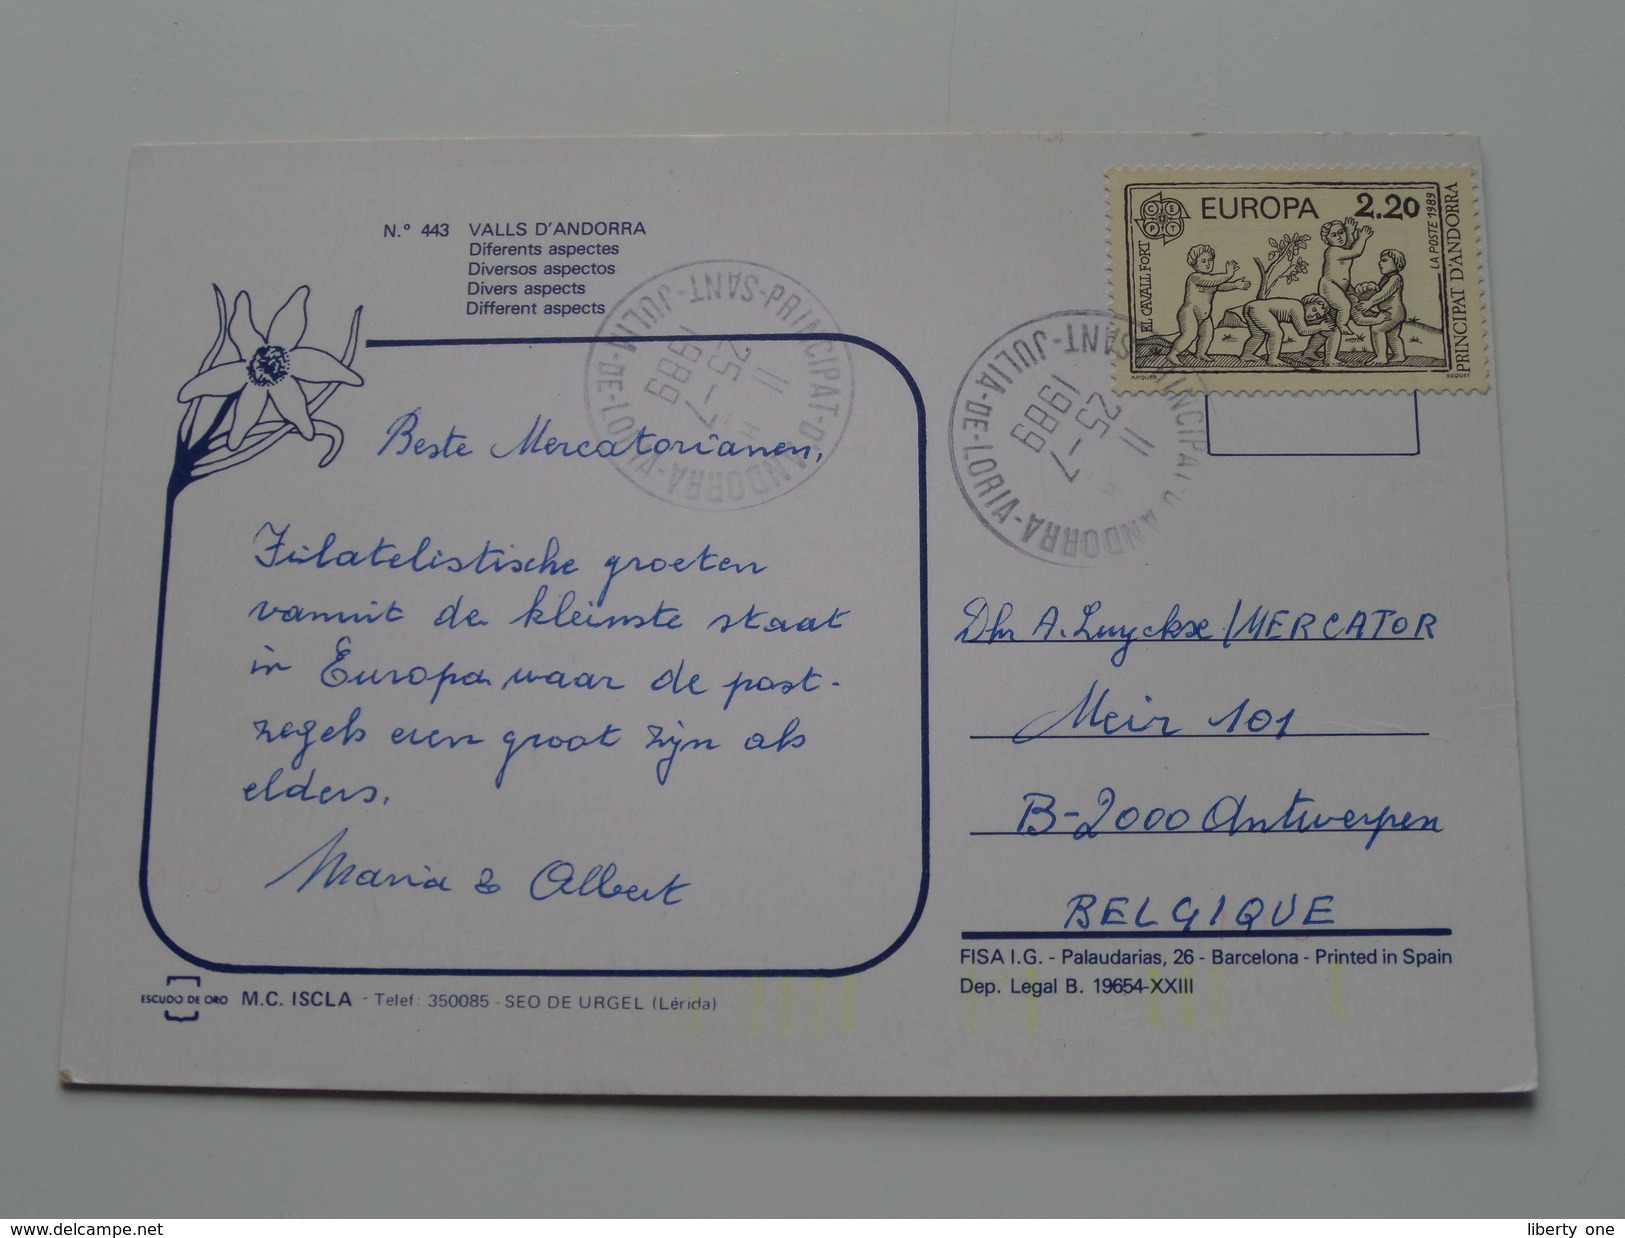 N.º 443 VALLS D'ANDORRA
Diferents aspectes
Diversos aspectos
Divers aspects
Different aspects
Beste Mercatorianen,
Filatelistische groeten
vanuit de kleinste staat
in Europa waar de post-
zegels even groot zijn als
elders.
Maria & Albert
ESCUDO DE ORO M.C. ISCLA - Telef: 350085 - SEO DE URGEL (Lérida)
PRINCIPAT-D'ANDORRA-VIA-DE-LORIA-SANT-JULIA-
11
25-7
1989
CEPT EUROPA 2.20
EL CAVALL FORT
LA POSTE 1989
PRINCIPAT D'ANDORRA
ARQUER BEQUET
PRINCIPAT-D'ANDORRA-VIA-DE-LORIA-SANT-JULIA-
11
25-7
1989
Dhr A. Luyckx/MERCATOR
Meir 101
B-2000 Antwerpen
BELGIQUE
FISA I.G. - Palaudarias, 26 - Barcelona - Printed in Spain
Dep. Legal B. 19654-XXIII
www.delcampe.net
liberty one